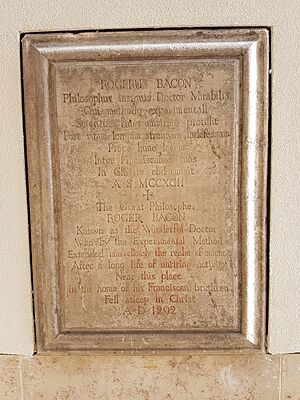 ROGERUS BACON
Philosophus insignis Doctor Mirabilis
Qui methodo experimentali
Scientiae fines mirifice protulit
Post vitam longam strenuam indefessam
Prope hunc locum
Inter Franciscanos suos
In Christo obdormivit
A. S. MCCXCII
The Great Philosopher
ROGER BACON
Known as the Wonderful Doctor
Who by the Experimental Method
Extended marvellously the realm of science
After a long life of untiring activity
Near this place
in the home of his Franciscan brethren
Fell asleep in Christ
A.D 1292